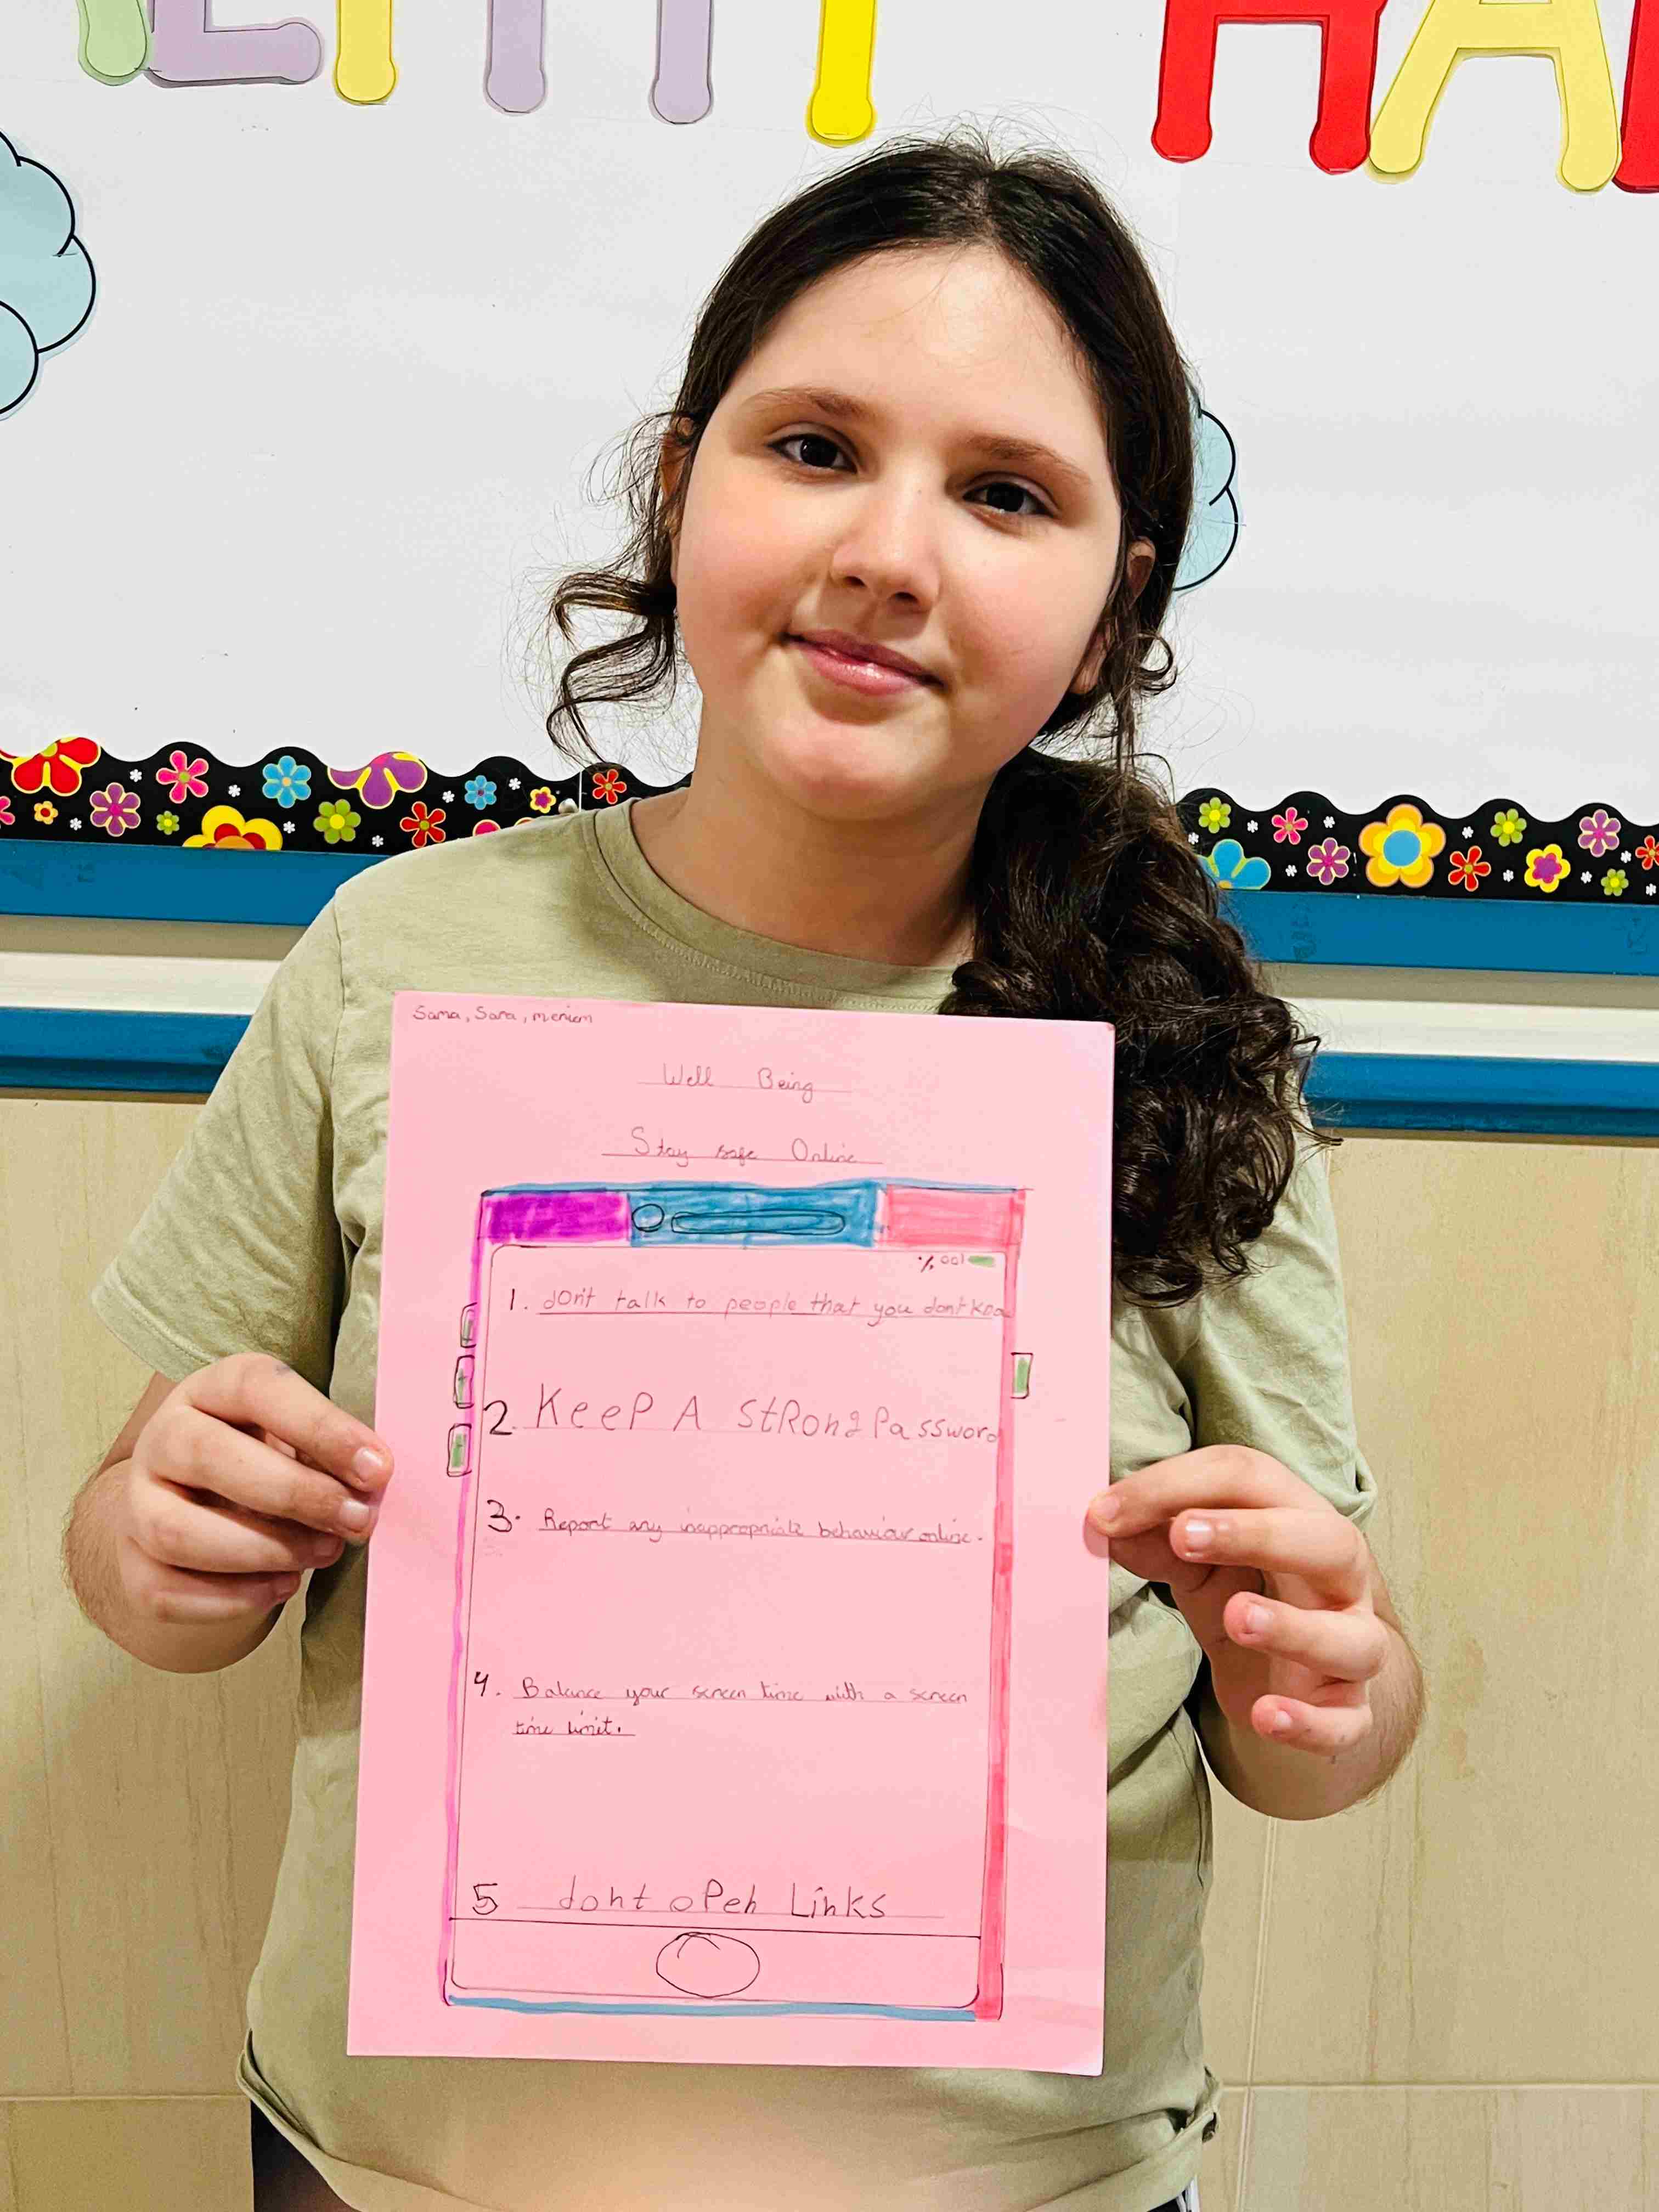 Sama, Sara, meriem
Well Being
Stay safe Online
% 001
1. dOn't talk to people that you dont kno
2. KeeP A StRong Password
3. Report any inappropriate behaviour online.
4. Balance your screen time with a screen
time limit.
5 dont oPen Links